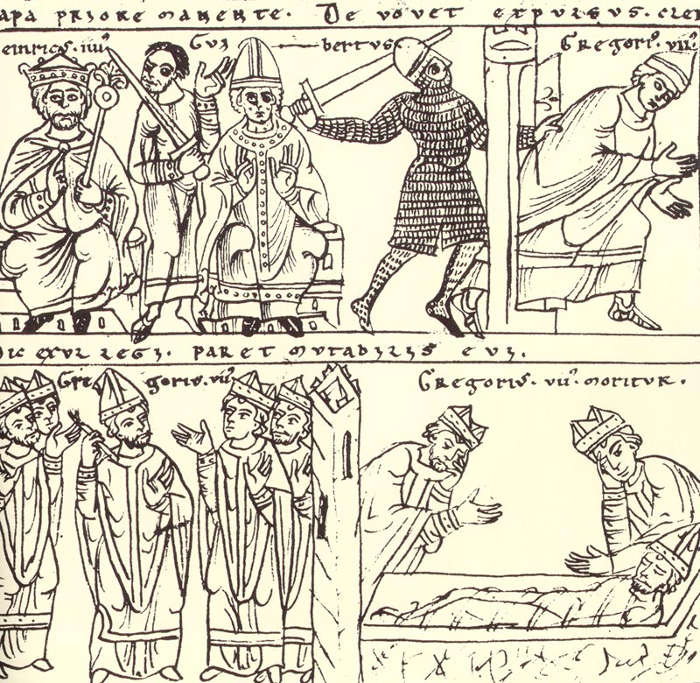 APA PRIORE MANENTE. DE VOVET EXPURSUS. CRE
einricus. iiii' Gui bertus. Gregori'. vii'
DIC EXUR REGI. PARET MUTABIRIS EUI.
Gre gorius. vii'
Gregorius. vii' moritur.